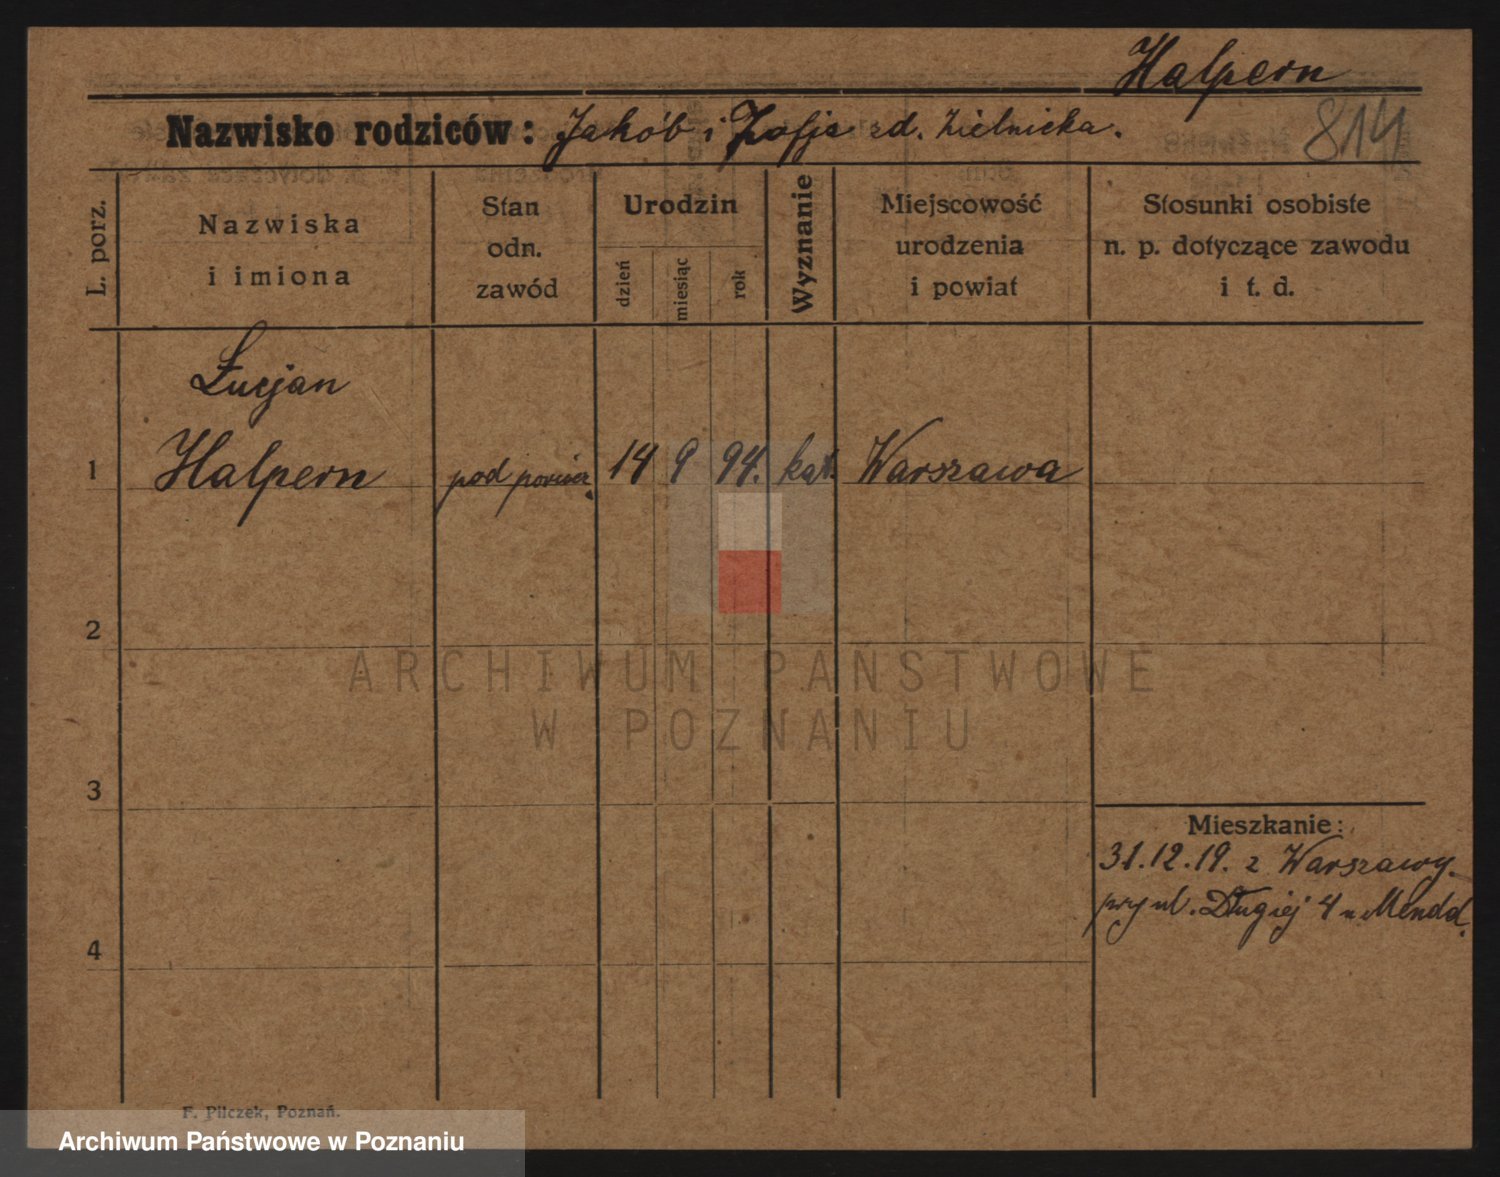 Halpern
Nazwisko rodziców: Jakób i Zofja zd. Zielnicka.
814
L. porz.
Nazwiska
i imiona
Stan
odn.
zawód
Urodzin
dzień
miesiąc
rok
Wyznanie
Miejscowość
urodzenia
i powiat
Stosunki osobiste
n. p. dotyczące zawodu
i t. d.
Łucjan
1 Halpern pod porucz. 14 9 94. kat. Warszawa
2
ARCHIWUM PAŃSTWOWE
W POZNANIU
3
Mieszkanie:
31.12.19. z Warszawy
przy ul. Długiej 4 u Mendd.
4
F. Pilczek, Poznań.
Archiwum Państwowe w Poznaniu